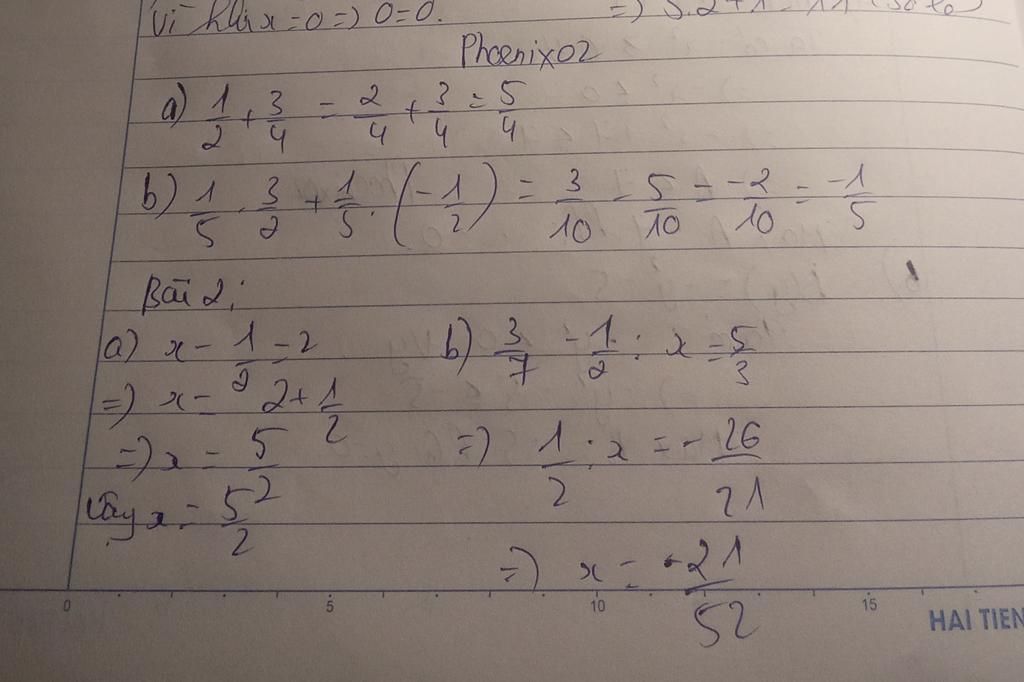 Vì khi x=0 => 0=0.
Phoenix02
a) 1/2 + 3/4 = 2/4 + 3/4 = 5/4
b) 1/5 . 3/2 + 1/5 . (-1/2) = 3/10 - 5/10 = -2/10 = -1/5
Bài 2;
a) x - 1/2 = 2
b) 3/7 - 1/2 : x = 5/3
=> x = 2 + 1/2
=> x = 5/2
=> 1/2 : x = -26/21
Vậy x = 5/2
=> x = -21/52
0 5 10 15
HAI TIEN